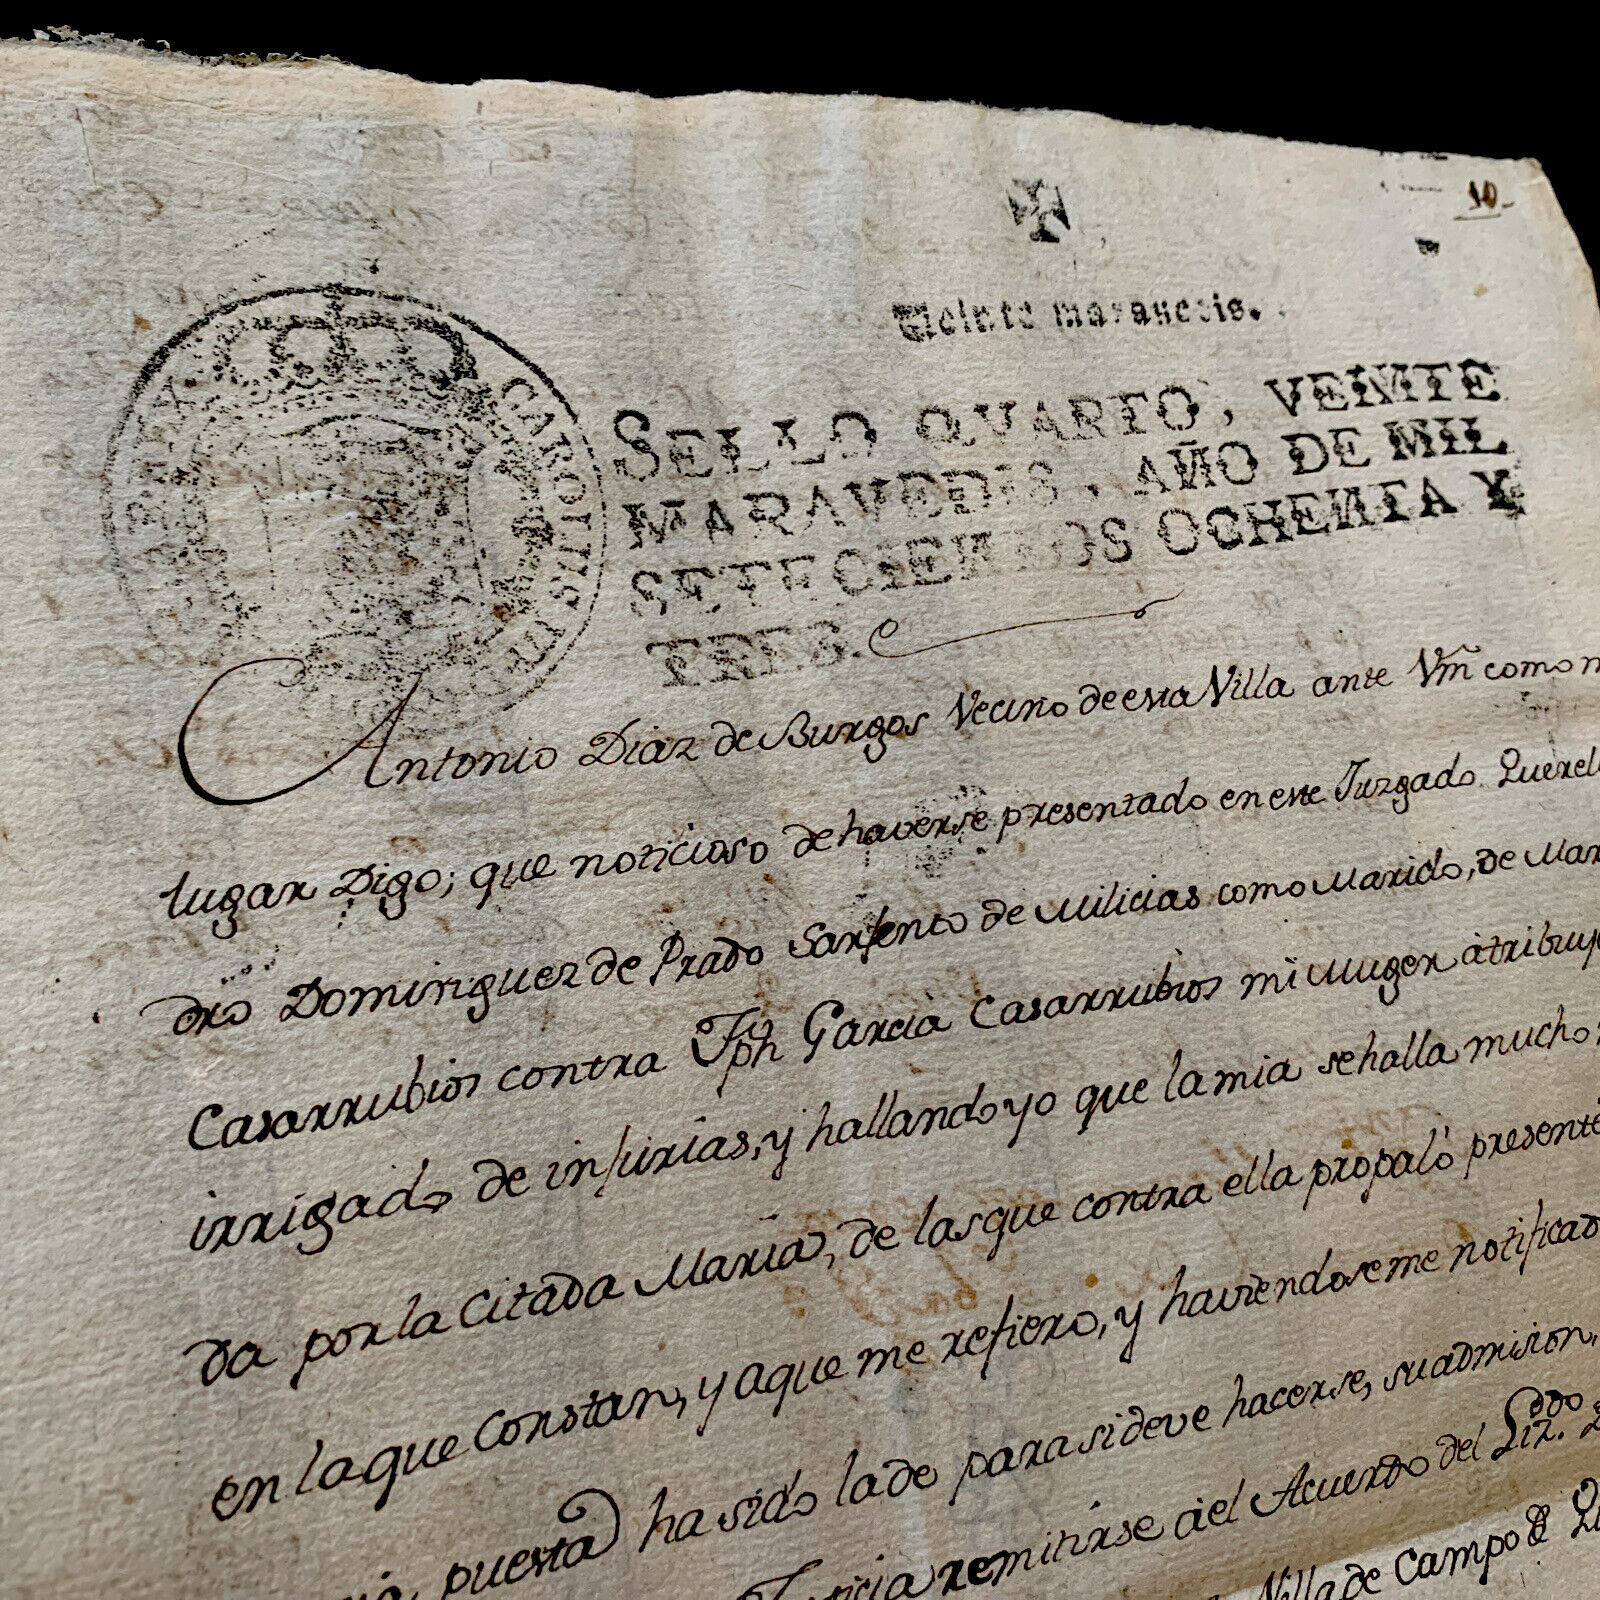 10.
Veinte maravedis.
SELLO QVARTO, VEINTE
MARAVEDIS, AÑO DE MIL
SETECIENTOS OCHENTA Y
TRES.
CAROLUS III
Antonio Diaz de Burgos Vecino de esta Villa ante Vm̃ como m
lugar Digo; que noticioso de haverse presentado en este Juzgado Querell
dro Dominguez de Prado Sarjento de Milicias como Marido, de Mar
Casarrubios contra Jph Garcia Casarrubios mi Muger atribuy
irrigado de injurias, y hallando yo que la mia se halla mucho
da por la Citada Maria, de las que contra ella propaló presenté
en la que Constan, y a que me refiero, y haviendoseme notificad
puesta ha sido la de para si deve hacerse, su admision,
remitirse á el Acuerdo del Lizdo.
Villa de Campo de